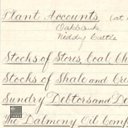 Plant Accounts, (at
Oakbank
Niddry Castle
Stocks of Stores, Coal, &c
Stocks of Shale and Cru
Sundry Debtors and D
The Dalmeny Oil Comp